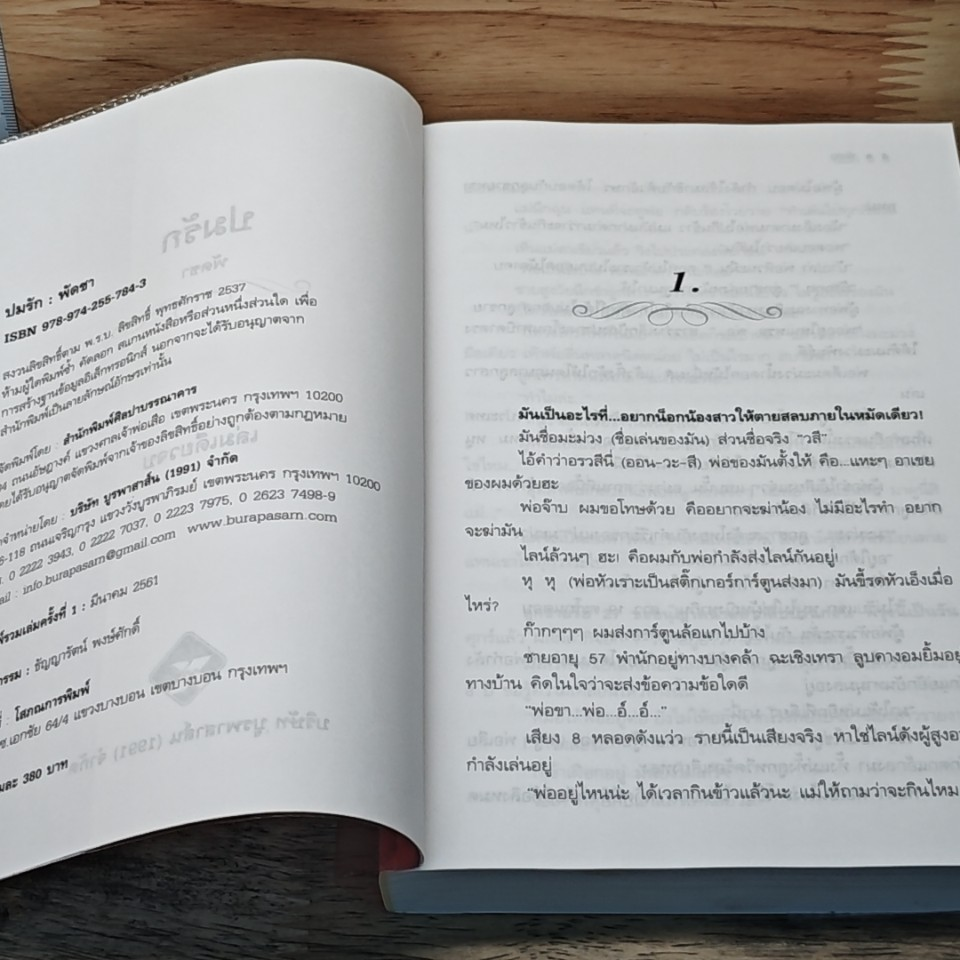 ปมรัก : พัดชา
ISBN 978-974-255-784-3
สงวนลิขสิทธิ์ตาม พ.ร.บ. ลิขสิทธิ์ พุทธศักราช 2537
ห้ามผู้ใดพิมพ์ซ้ำ คัดลอก สแกนหนังสือหรือส่วนหนึ่งส่วนใด เพื่อ
การสร้างฐานข้อมูลอิเล็กทรอนิกส์ นอกจากจะได้รับอนุญาตจาก
สำนักพิมพ์เป็นลายลักษณ์อักษรเท่านั้น
จัดพิมพ์โดย : สำนักพิมพ์ศิลปาบรรณาคาร
ถนนอัษฎางค์ แขวงศาลเจ้าพ่อเสือ เขตพระนคร กรุงเทพฯ 10200
โดยได้รับอนุญาตจัดพิมพ์จากเจ้าของลิขสิทธิ์อย่างถูกต้องตามกฎหมาย
จำหน่ายโดย : บริษัท บูรพาสาส์น (1991) จำกัด
6-118 ถนนเจริญกรุง แขวงวังบูรพาภิรมย์ เขตพระนคร กรุงเทพฯ 10200
0 2222 3943, 0 2222 7037, 0 2223 7975, 0 2623 7498-9
ail : info.burapasarn@gmail.com www.burapasarn.com
รวมเล่มครั้งที่ 1 : มีนาคม 2561
กรรม : ธัญญารัตน์ พงษ์ศักดิ์
: โสภณการพิมพ์
ซ.เอกชัย 64/4 แขวงบางบอน เขตบางบอน กรุงเทพฯ
มละ 380 บาท
1.
มันเป็นอะไรที่...อยากน็อกน้องสาวให้ตายสลบภายในหมัดเดียว!
มันชื่อมะม่วง (ชื่อเล่นของมัน) ส่วนชื่อจริง “วสี”
ไอ้คำว่าอรวสีนี่ (ออน-วะ-สี) พ่อของมันตั้งให้ คือ...แหะๆ อาเขย
ของผมด้วยฮะ
พ่อจ๊าบ ผมขอโทษด้วย คืออยากจะฆ่าน้อง ไม่มีอะไรทำ อยาก
จะฆ่ามัน
ไลน์ล้วนๆ ฮะ! คือผมกับพ่อกำลังส่งไลน์กันอยู่!
หุ หุ (พ่อหัวเราะเป็นสติ๊กเกอร์การ์ตูนส่งมา) มันขี้รดหัวเอ็งเมื่อ
ไหร่?
ก๊ากๆๆๆ ผมส่งการ์ตูนล้อแกไปบ้าง
ชายอายุ 57 พำนักอยู่ทางบางคล้า ฉะเชิงเทรา ลูบคางอมยิ้มอยู่
ทางบ้าน คิดในใจว่าจะส่งข้อความข้อใดดี
“พ่อขา...พ่อ...อ์...อ์...”
เสียง 8 หลอดดังแว่ว รายนี้เป็นเสียงจริง หาใช่ไลน์ดังผู้สูงอา
กำลังเล่นอยู่
“พ่ออยู่ไหนน่ะ ได้เวลากินข้าวแล้วนะ แม่ให้ถามว่าจะกินไหม